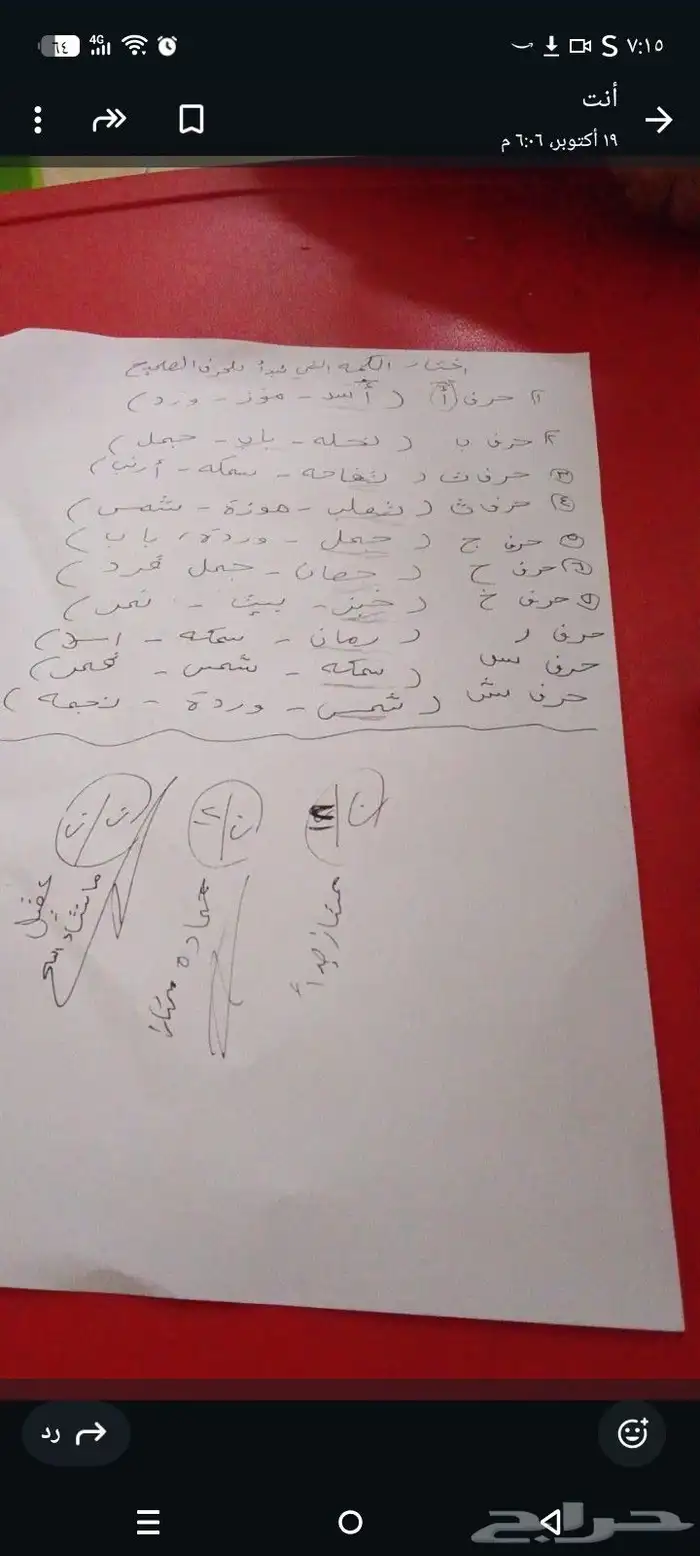 ٧:١٥
4G
٦٤
أنت
١٩ أكتوبر، ٦:٠٦ م
اختار الكلمه التي تبدأ بالحرف الصحيح
١) حرف (أ) ( أسد - موز - ورد )
٢) حرف ب ( نخله - باب - جمل )
٣) حرف ت ( تفاحه - سمكه - أرنب )
٤) حرف ث ( ثعلب - موزة - شمس )
٥) حرف ج ( جمل - وردة، باب )
٦) حرف ح ( حصان - جمل قرد )
حرف خ ( خبز - بيت - نمر )
حرف ر ( رمان - سمكه - اسد )
حرف س ( سمكه - شمس - )
حرف ش ( شمس - وردة - نجمه )
ممتاز جدأ
ماشاء الله
رد
حراج